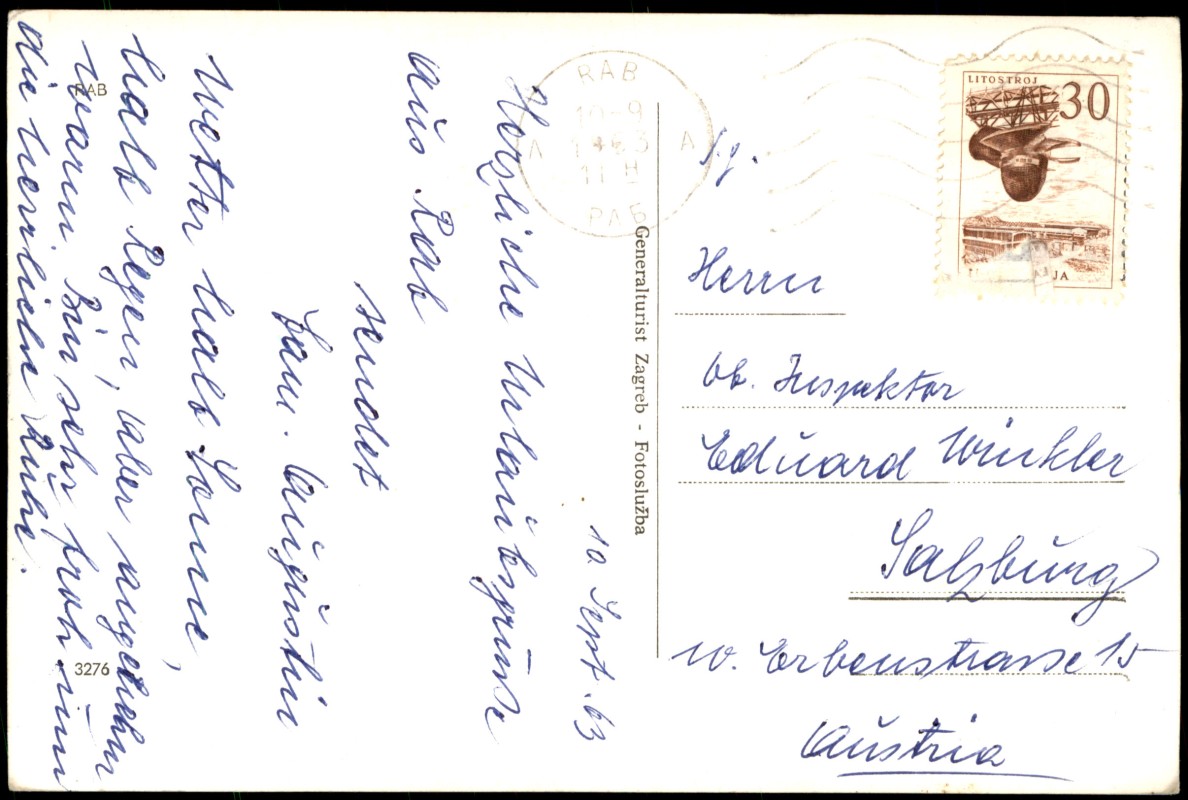 10 Sept. 63
Herzliche Urlaubsgrüsse
aus Rab
sendet
Fam. Augustin
Wetter halb Sonne,
halb Regen, aber angenehm
warm. Bin sehr froh um
die herrliche Ruhe.
RAB
3276
Generalturist Zagreb - Fotoslužba
RAB
10-9
1963
11 H
A A
RAB
LITOSTROJ
30
JA
Herrn
Ob. Inspektor
Eduard Winkler
Salzburg
W. Erbenstrasse 15
Austria